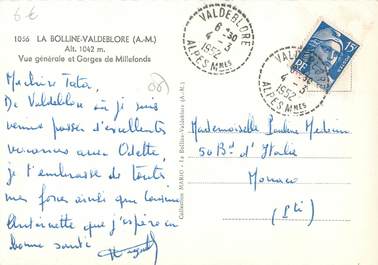 6€
1056 LA BOLLINE-VALDEBLORE (A.-M.)
Alt. 1042 m.
Vue générale et Gorges de Millefonds
VALDEBLORE
6-30
4-3
1952
ALPES MMES
VALDEBLORE
6-30
4-3
1952
ALPES MMES
15F
RF
POSTES
Ma chère Tata,
De Valdeblore où je suis
venue passer d'excellentes
vacances avec Odette,
je t'embrasse de toutes
mes forces ainsi que
Antoinette que j'espère en
bonne santé
Collection MARIO - La Bolline-Valdeblore (A.-M.)
Mademoiselle Pauline Médecin
50 Bd d'Italie
Monaco
(Pté)